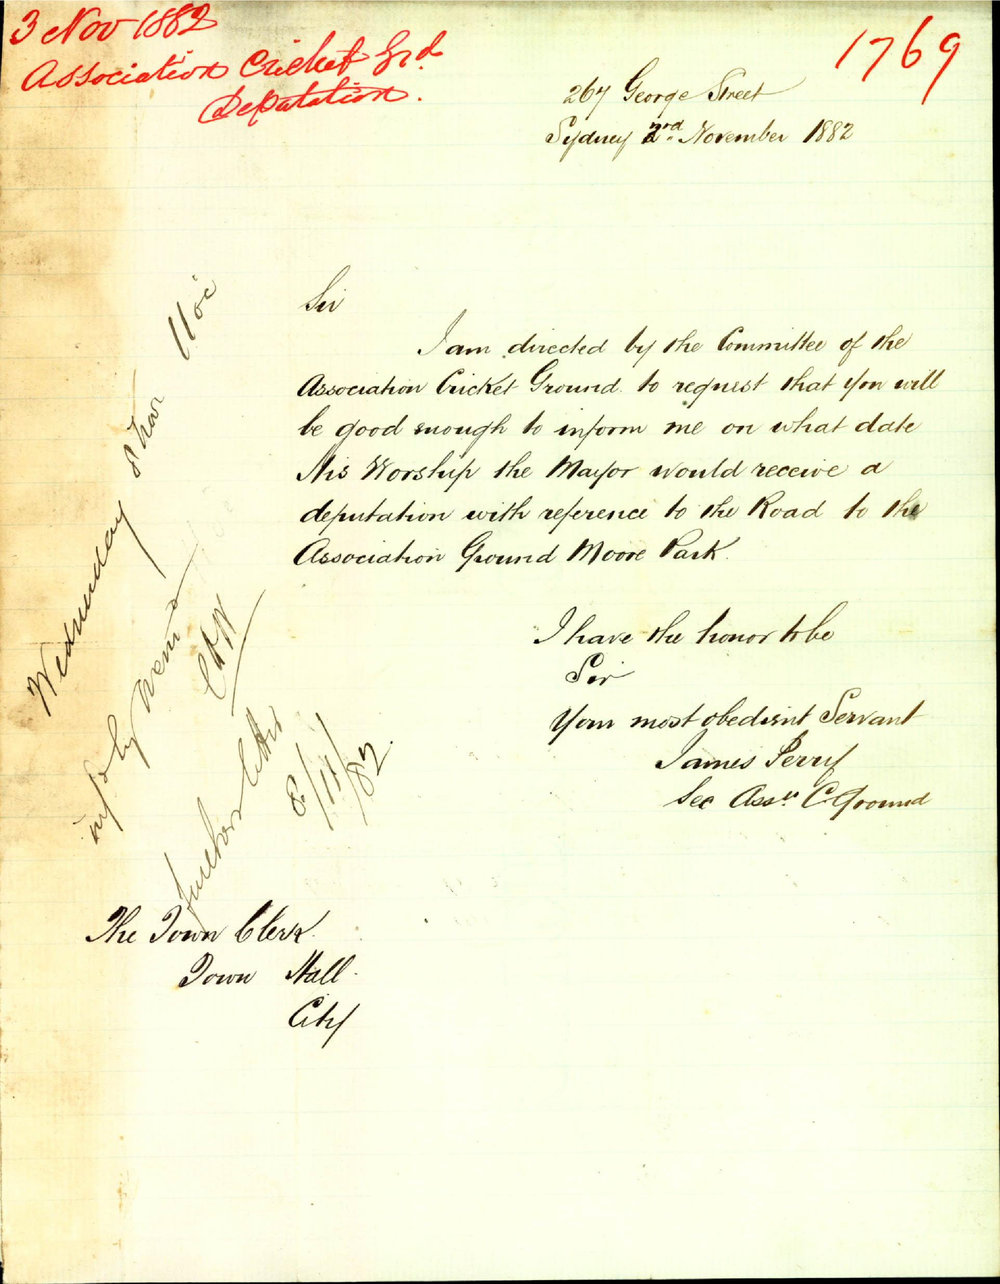 3 Nov 1882
Association Cricket Grd
Deputation.
1769
267 George Street
Sydney 2nd November 1882
Sir
I am directed by the Committee of the
Association Cricket Ground to request that you will
be good enough to inform me on what date
His Worship the Mayor would receive a
deputation with reference to the Road to the
Association Ground Moore Park.
I have the honor to be
Sir
Your most obedient Servant
James Perry
Sec Assn C. Ground
Wednesday 8 Nov 11 oc
by
8/11/82
The Town Clerk
Town Hall
City